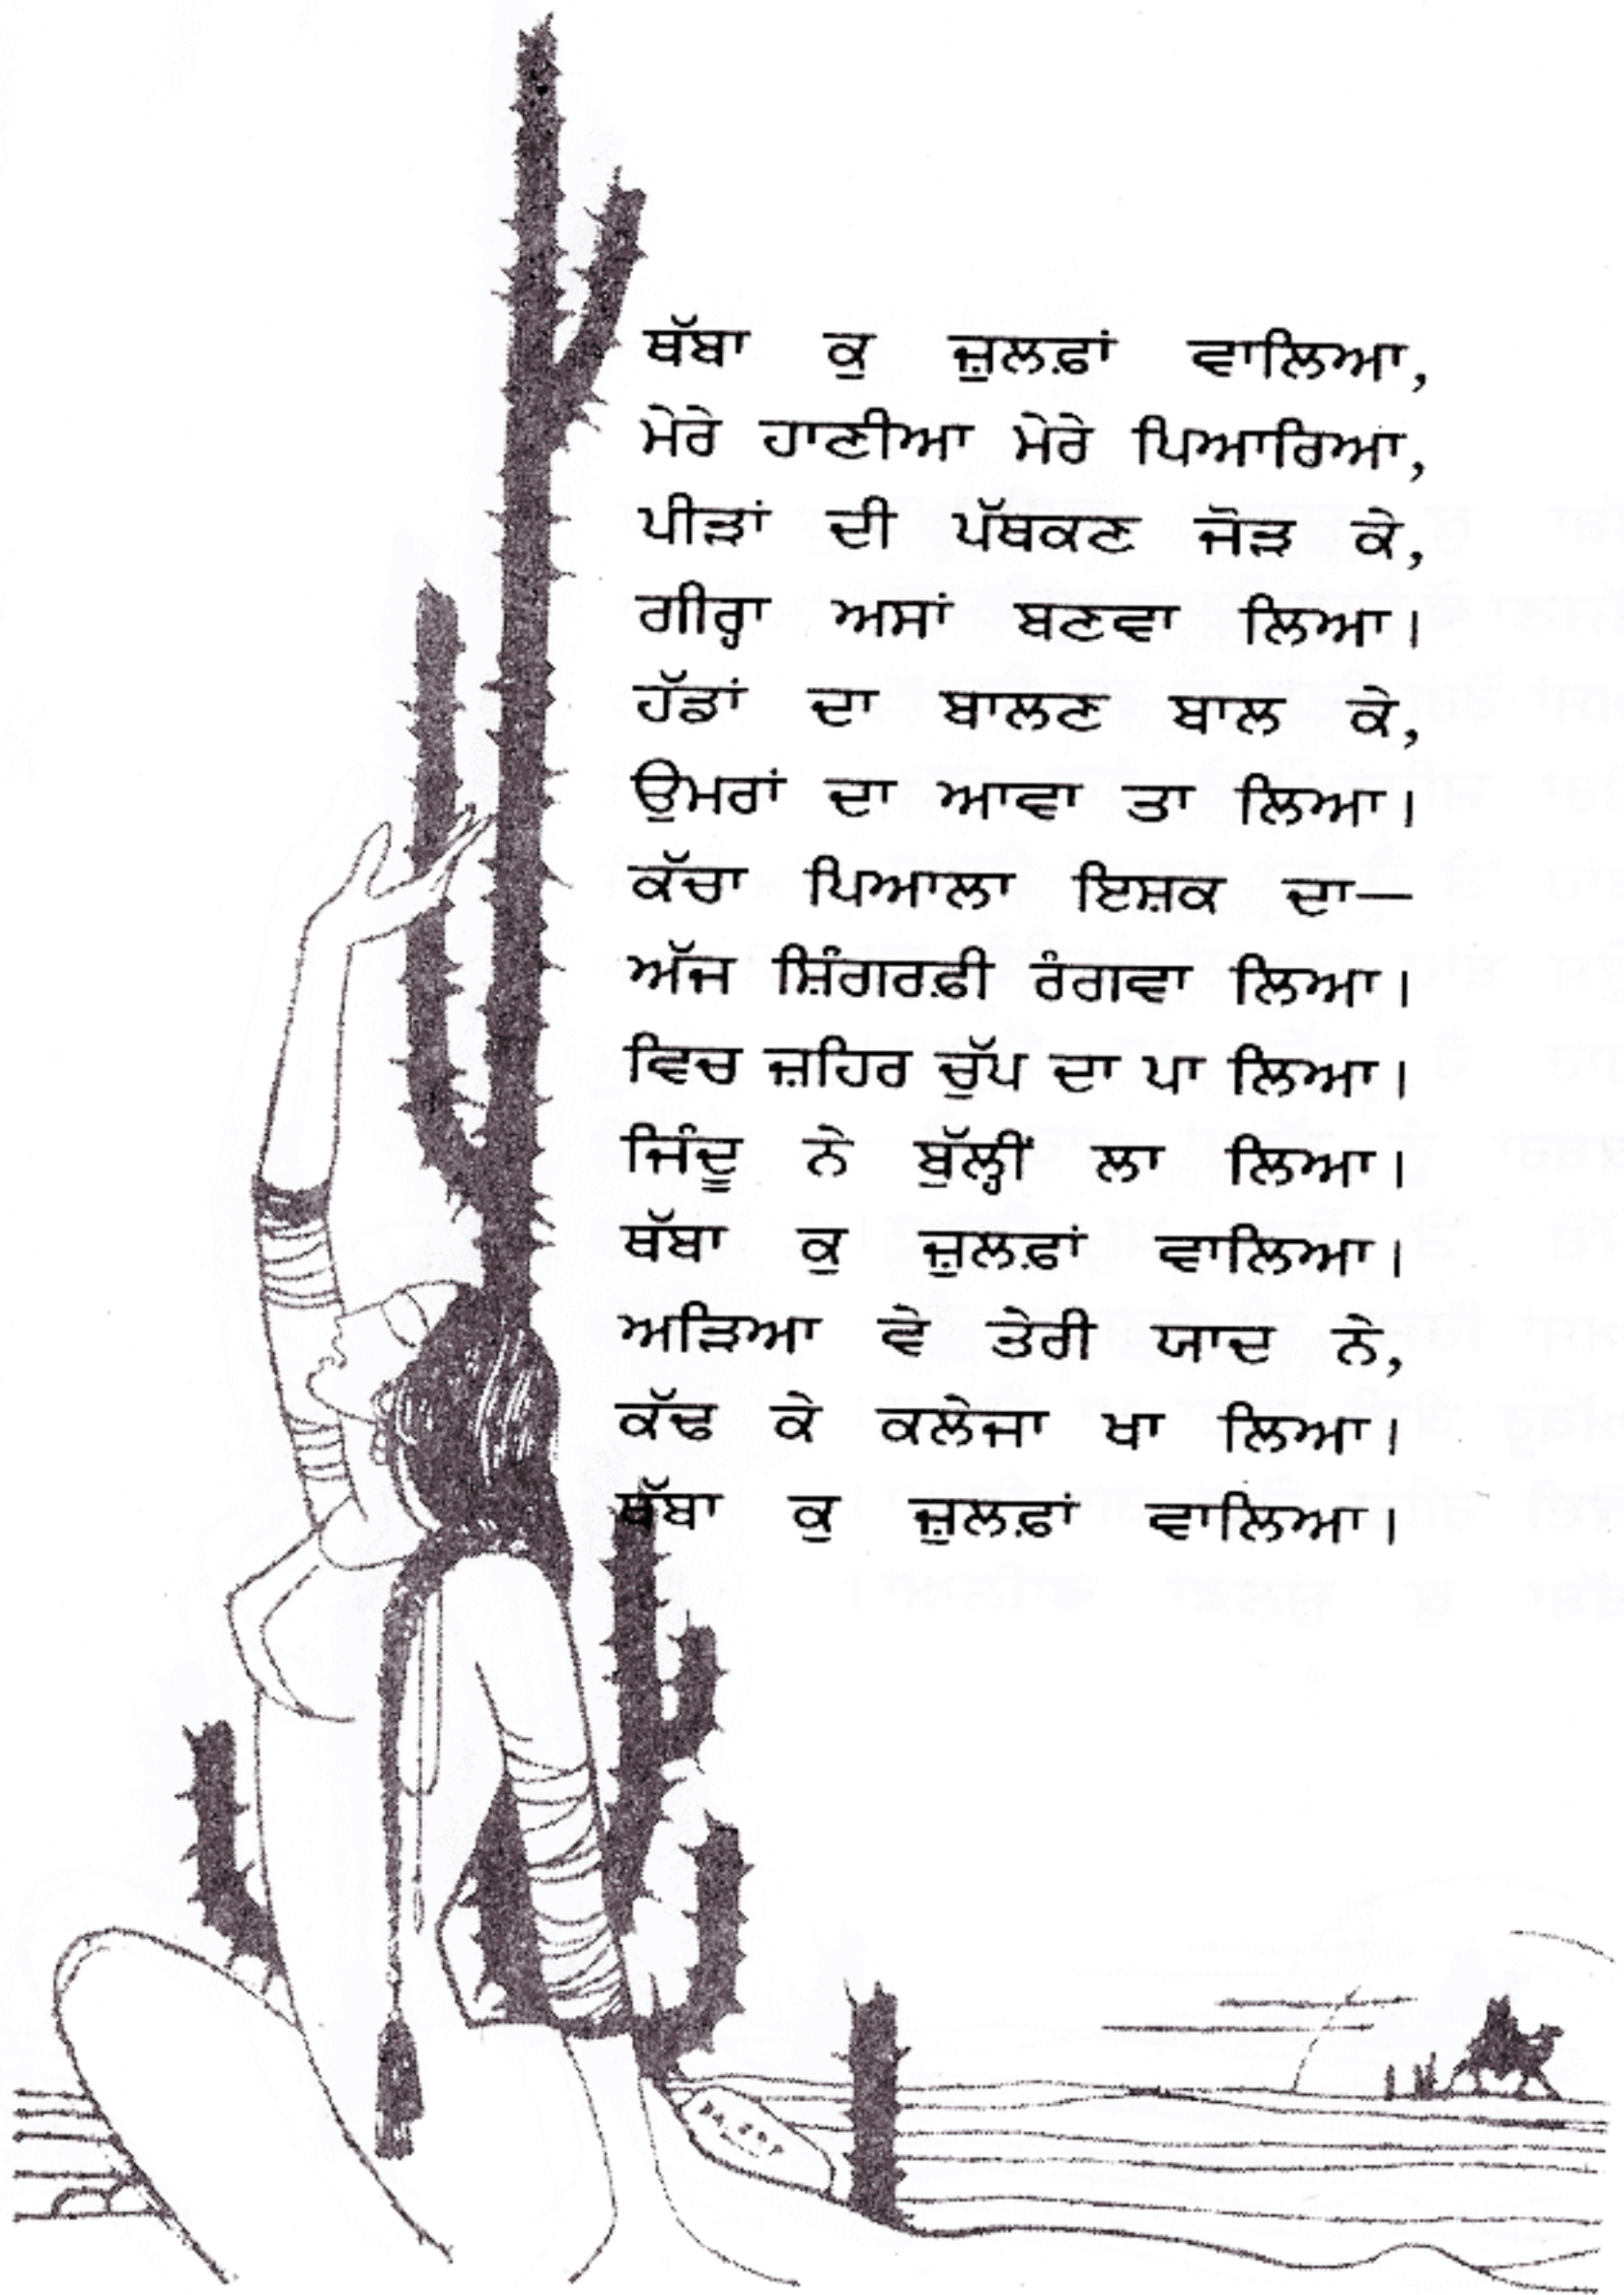 ਥੱਬਾ ਕੁ ਜ਼ੁਲਫ਼ਾਂ ਵਾਲਿਆ,
ਮੇਰੇ ਹਾਣੀਆ ਮੇਰੇ ਪਿਆਰਿਆ,
ਪੀੜਾਂ ਦੀ ਪੱਥਕਣ ਜੋੜ ਕੇ,
ਗੀਰ੍ਹਾ ਅਸਾਂ ਬਣਵਾ ਲਿਆ।
ਹੱਡਾਂ ਦਾ ਬਾਲਣ ਬਾਲ ਕੇ,
ਉਮਰਾਂ ਦਾ ਆਵਾ ਤਾ ਲਿਆ।
ਕੱਚਾ ਪਿਆਲਾ ਇਸ਼ਕ ਦਾ—
ਅੱਜ ਸ਼ਿੰਗਰਫ਼ੀ ਰੰਗਵਾ ਲਿਆ।
ਵਿਚ ਜ਼ਹਿਰ ਚੁੱਪ ਦਾ ਪਾ ਲਿਆ।
ਜਿੰਦੂ ਨੇ ਬੁੱਲ੍ਹੀਂ ਲਾ ਲਿਆ।
ਥੱਬਾ ਕੁ ਜ਼ੁਲਫ਼ਾਂ ਵਾਲਿਆ।
ਅੜਿਆ ਵੇ ਤੇਰੀ ਯਾਦ ਨੇ,
ਕੱਢ ਕੇ ਕਲੇਜਾ ਖਾ ਲਿਆ।
ਥੱਬਾ ਕੁ ਜ਼ੁਲਫ਼ਾਂ ਵਾਲਿਆ।